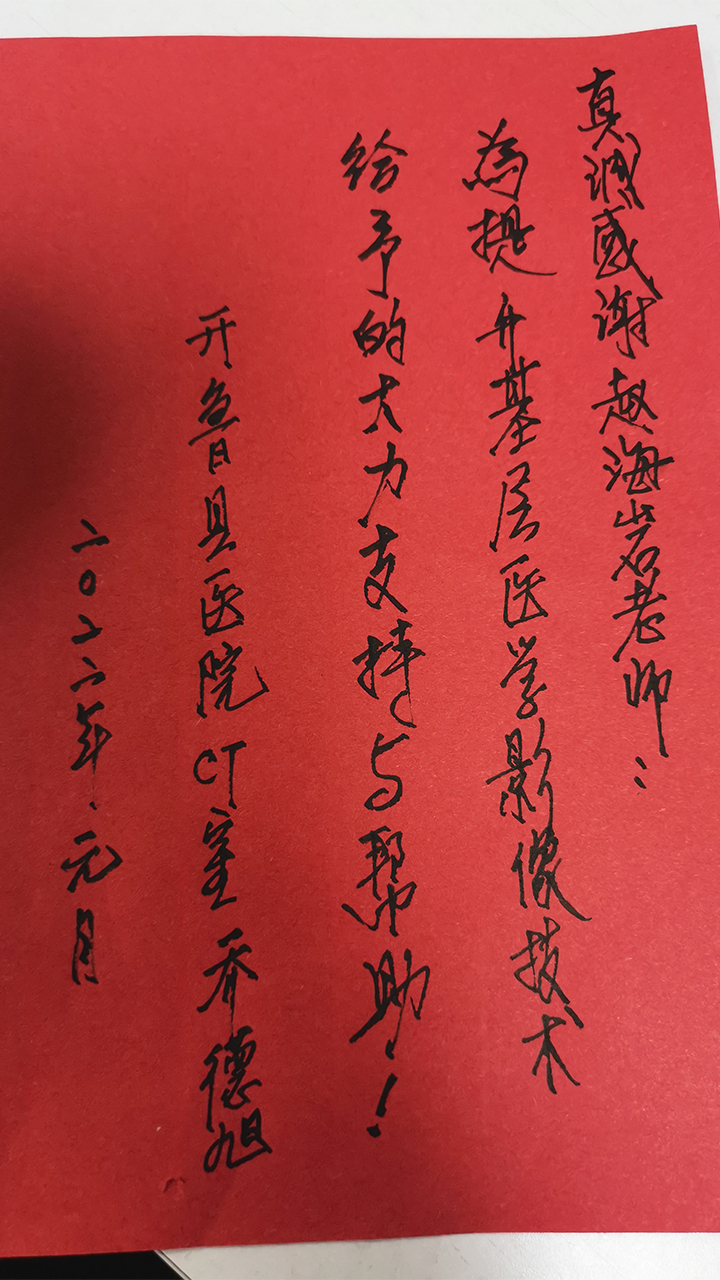 真诚感谢赵海岩老师：
為提升基层医学影像技术
给予的大力支持与帮助！
开鲁县医院CT室乔德旭
二〇二二年.元月